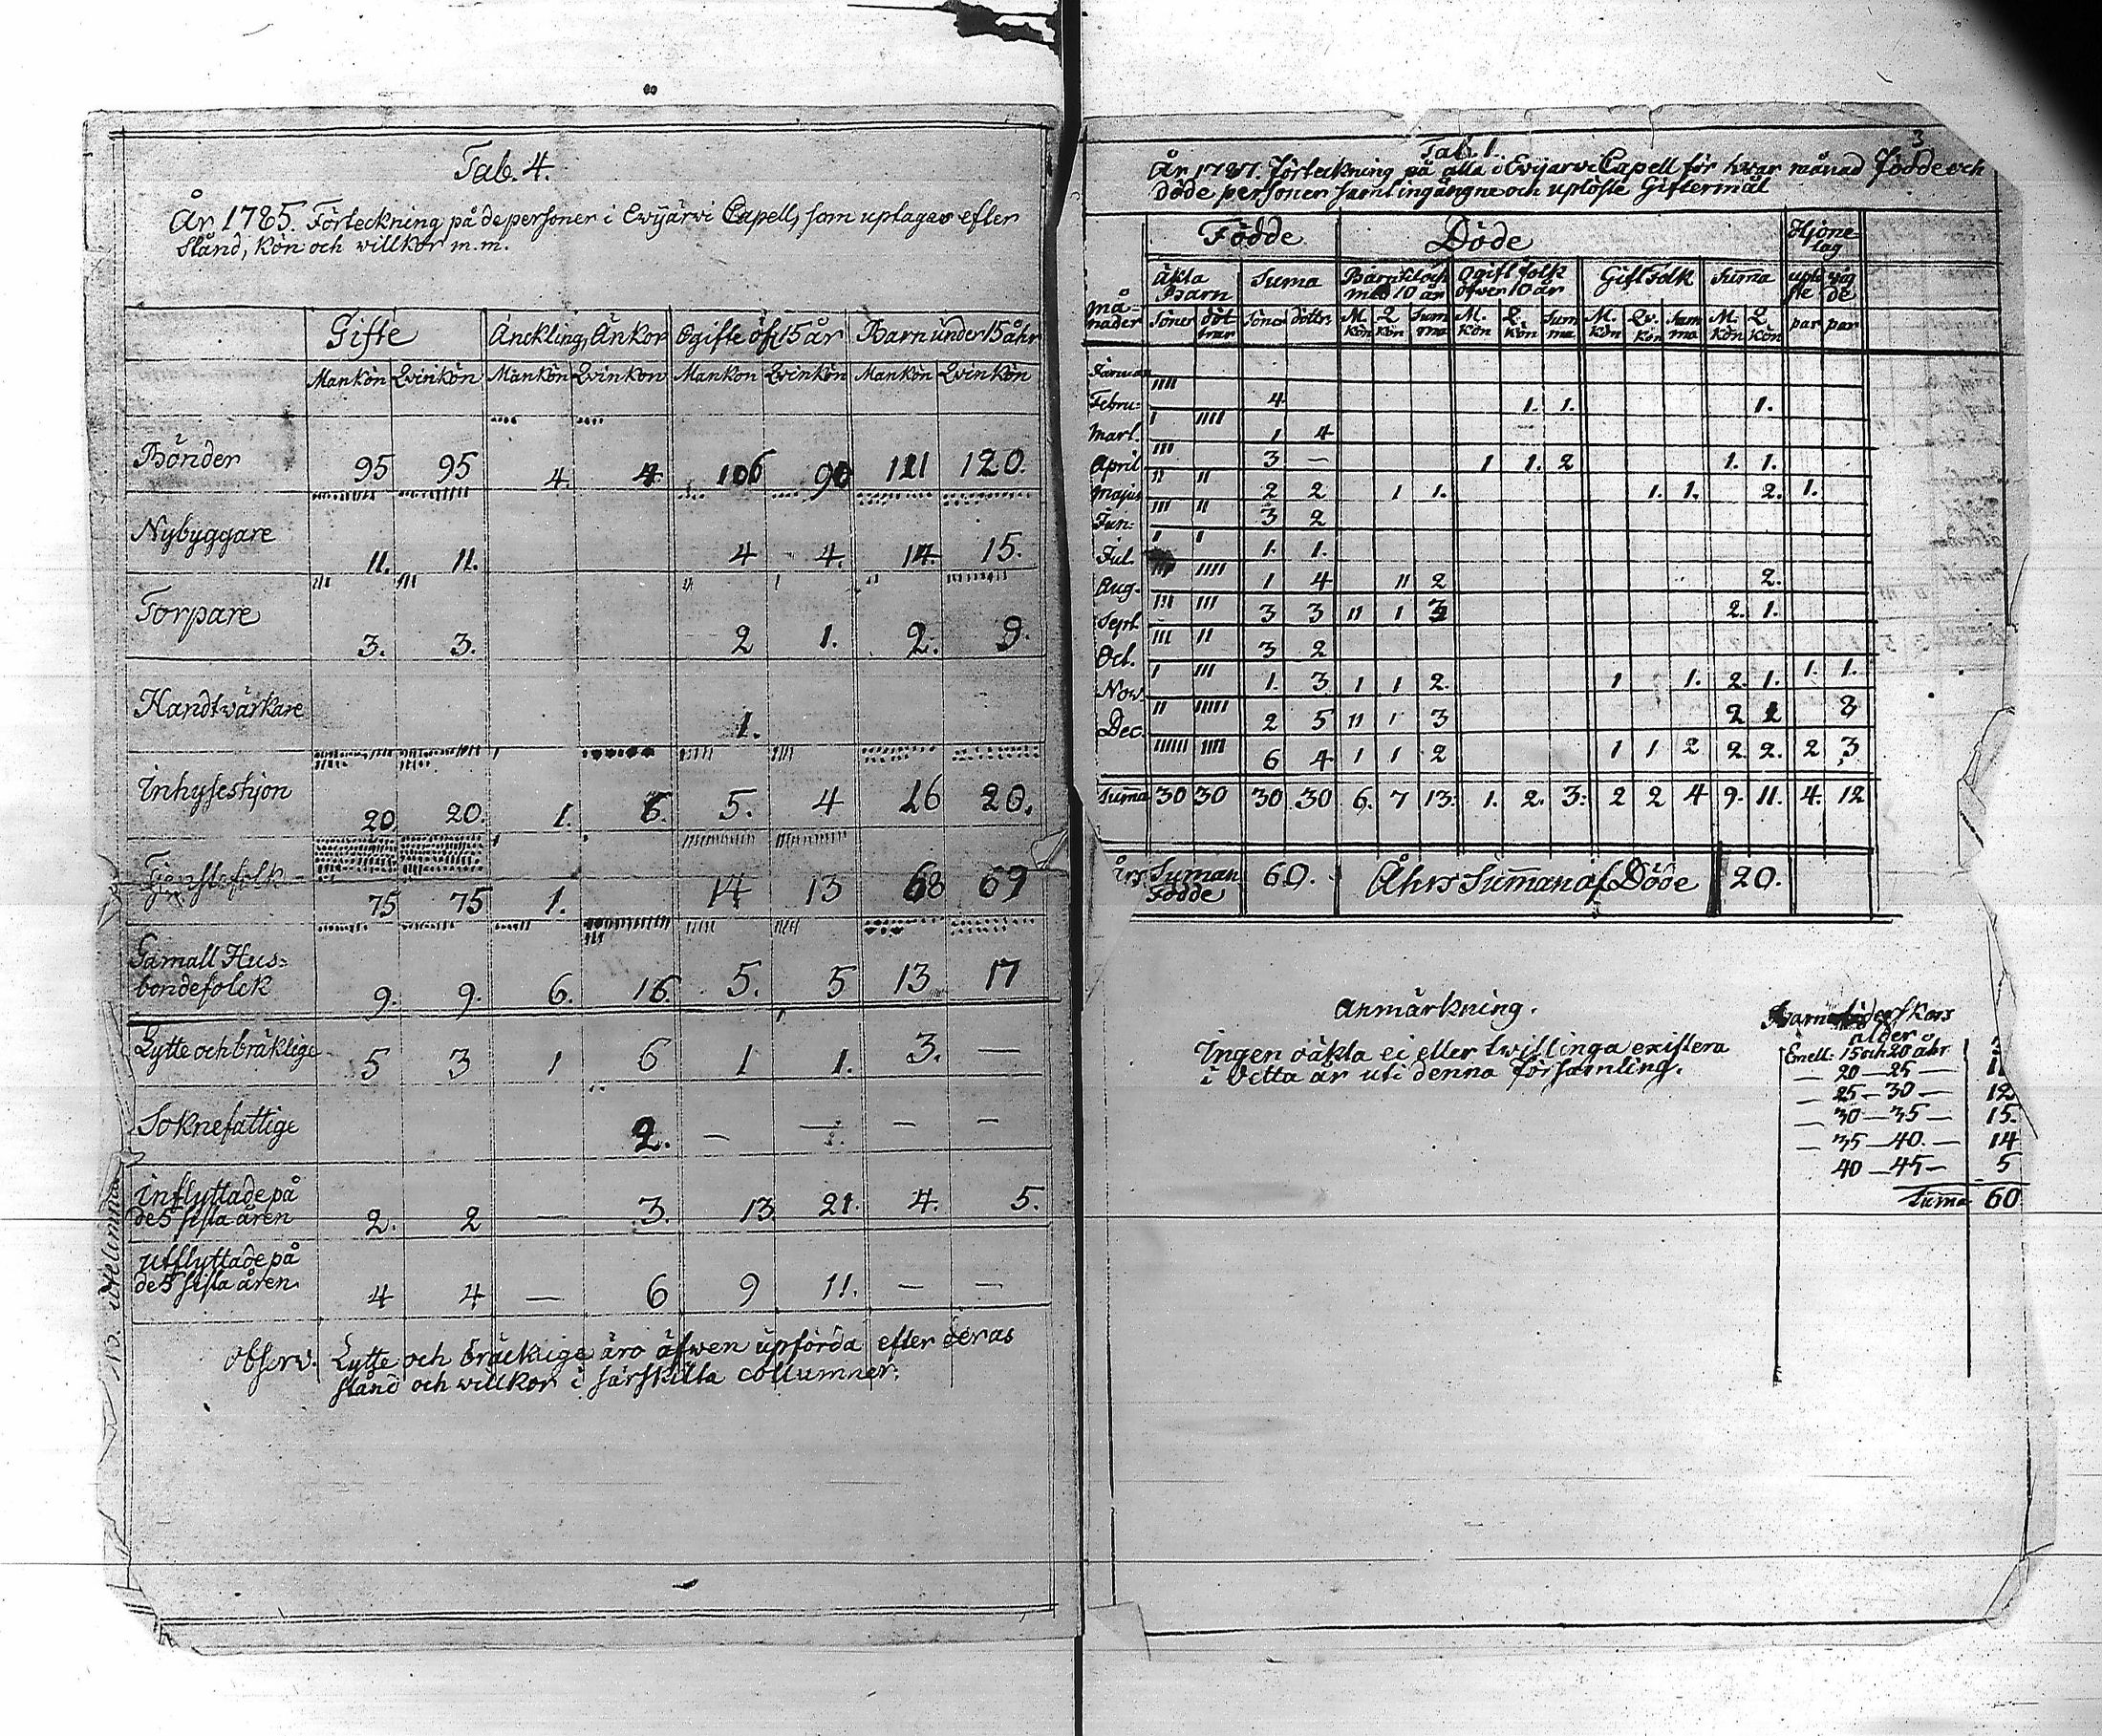 Tab. 4.
År 1785. Förteckning på de personer i Ewijärwi Capell, som uptagas efter
stånd, kön och willkor m. m.
Gifte Änckling, Änkor Ogifte öf. 15 år Barn under 15 åhr
Mankön Qvinkön Mankön Qvinkön Mankön Qvinkön Mankön Qvinkön
Bönder 95 95 4. 4. 106 90 121 120.
Nybyggare 11. 11. 4 4. 14. 15.
Torpare 3. 3. 2 1. 2. 9.
Handtwärkare 1.
Inhyseshjon 20 20. 1. 6. 5. 4 26 20.
Tjenstefolk 75 75 1. 14 13 68 69
Gamall Hus-
bondefolck 9. 9. 6. 16. 5. 5 13 17
Lytte och bräklige 5 3 1 6 1 1. 3. —
Soknefattige 2. — — — —
Inflyttade på
de 5 sista åren 2. 2 — 3. 13 21. 4. 5.
Utflyttade på
de 5 sista åren 4 4 — 6 9 11. — —
Observ. Lytte och bräcklige äro äfwen upförda efter deras
stånd och willkor i särskilta collumner.
3
Tab. 1.
År 1787. Förteckning på alla i Ewijärwi Capell för hwar månad Födde och
Döde personer samt ingångne och uplöste Giftermål
Födde Döde Hjone
lag
Äkta
Barn Suma Barn til och
med 10 år Ogift folk
öfver 10 år Gift folk Suma
må-
nader Söner döt
trar Söner döttr. M.
kön Q
kön Sum
ma M.
kön Q.
kön Sum
ma M.
kön Qv.
kön Sum
ma M.
kön Q.
kön par par
Januar. IIII 4 1. 1. 1.
Febru: I IIII 1 4
Mart. III 3 — 1 1. 2 1. 1.
April II II 2 2 1 1. 1. 1. 2. 1.
Majus III II 3 2
Jun: I I 1. 1.
Jul. IIII 1 4 II 2 2.
Aug. III III 3 3 II 1 3 2. 1.
Sept. III II 3 2
Oct. I III 1. 3 1 1 2. 1 1. 2. 1. 1. 1.
Now. II IIIII 2 5 II 1 3 2
Dec. IIIIII IIII 6 4 1 1 2 1 1 2 2. 2. 2 3
Suma 30 30 30 30 6. 7 13. 1. 2. 3. 2 2 4 9. 11. 4. 12
Suman
Födde 60. Åhrs Suman af Döde 20.
Anmärkning.
Ingen oäkta ei eller twillinga existera
i detta år uti denna församling.
ålder
Emell: 15 och 20 åhr
— 20 — 25 —
— 25 — 30 — 12
— 30 — 35 — 15.
— 35 — 40. — 14
40 — 45 — 5
Suma 60